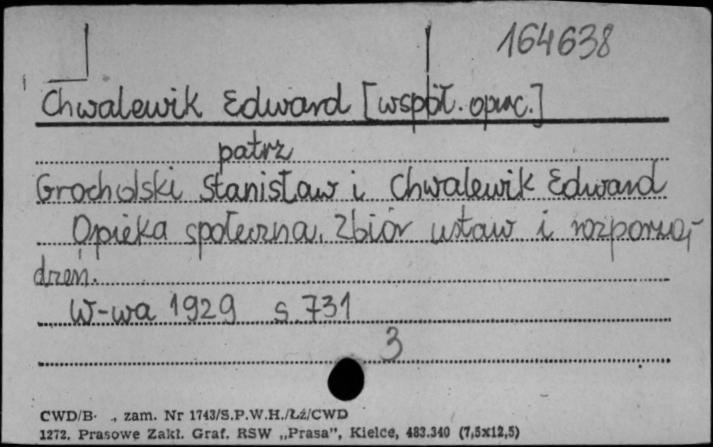 164638
Chwalewik Edward [współ. oprac.]
patrz
Grocholski Stanisław i Chwalewik Edward
Opieka społeczna. Zbiór ustaw i rozporzą-
dzeń.
W-wa 1929 s. 731
3
CWD/B- ., zam. Nr 1743/S.P.W.H./Łź/CWD
1272. Prasowe Zakł. Graf. RSW „Prasa", Kielce, 483.340 (7,5x12,5)